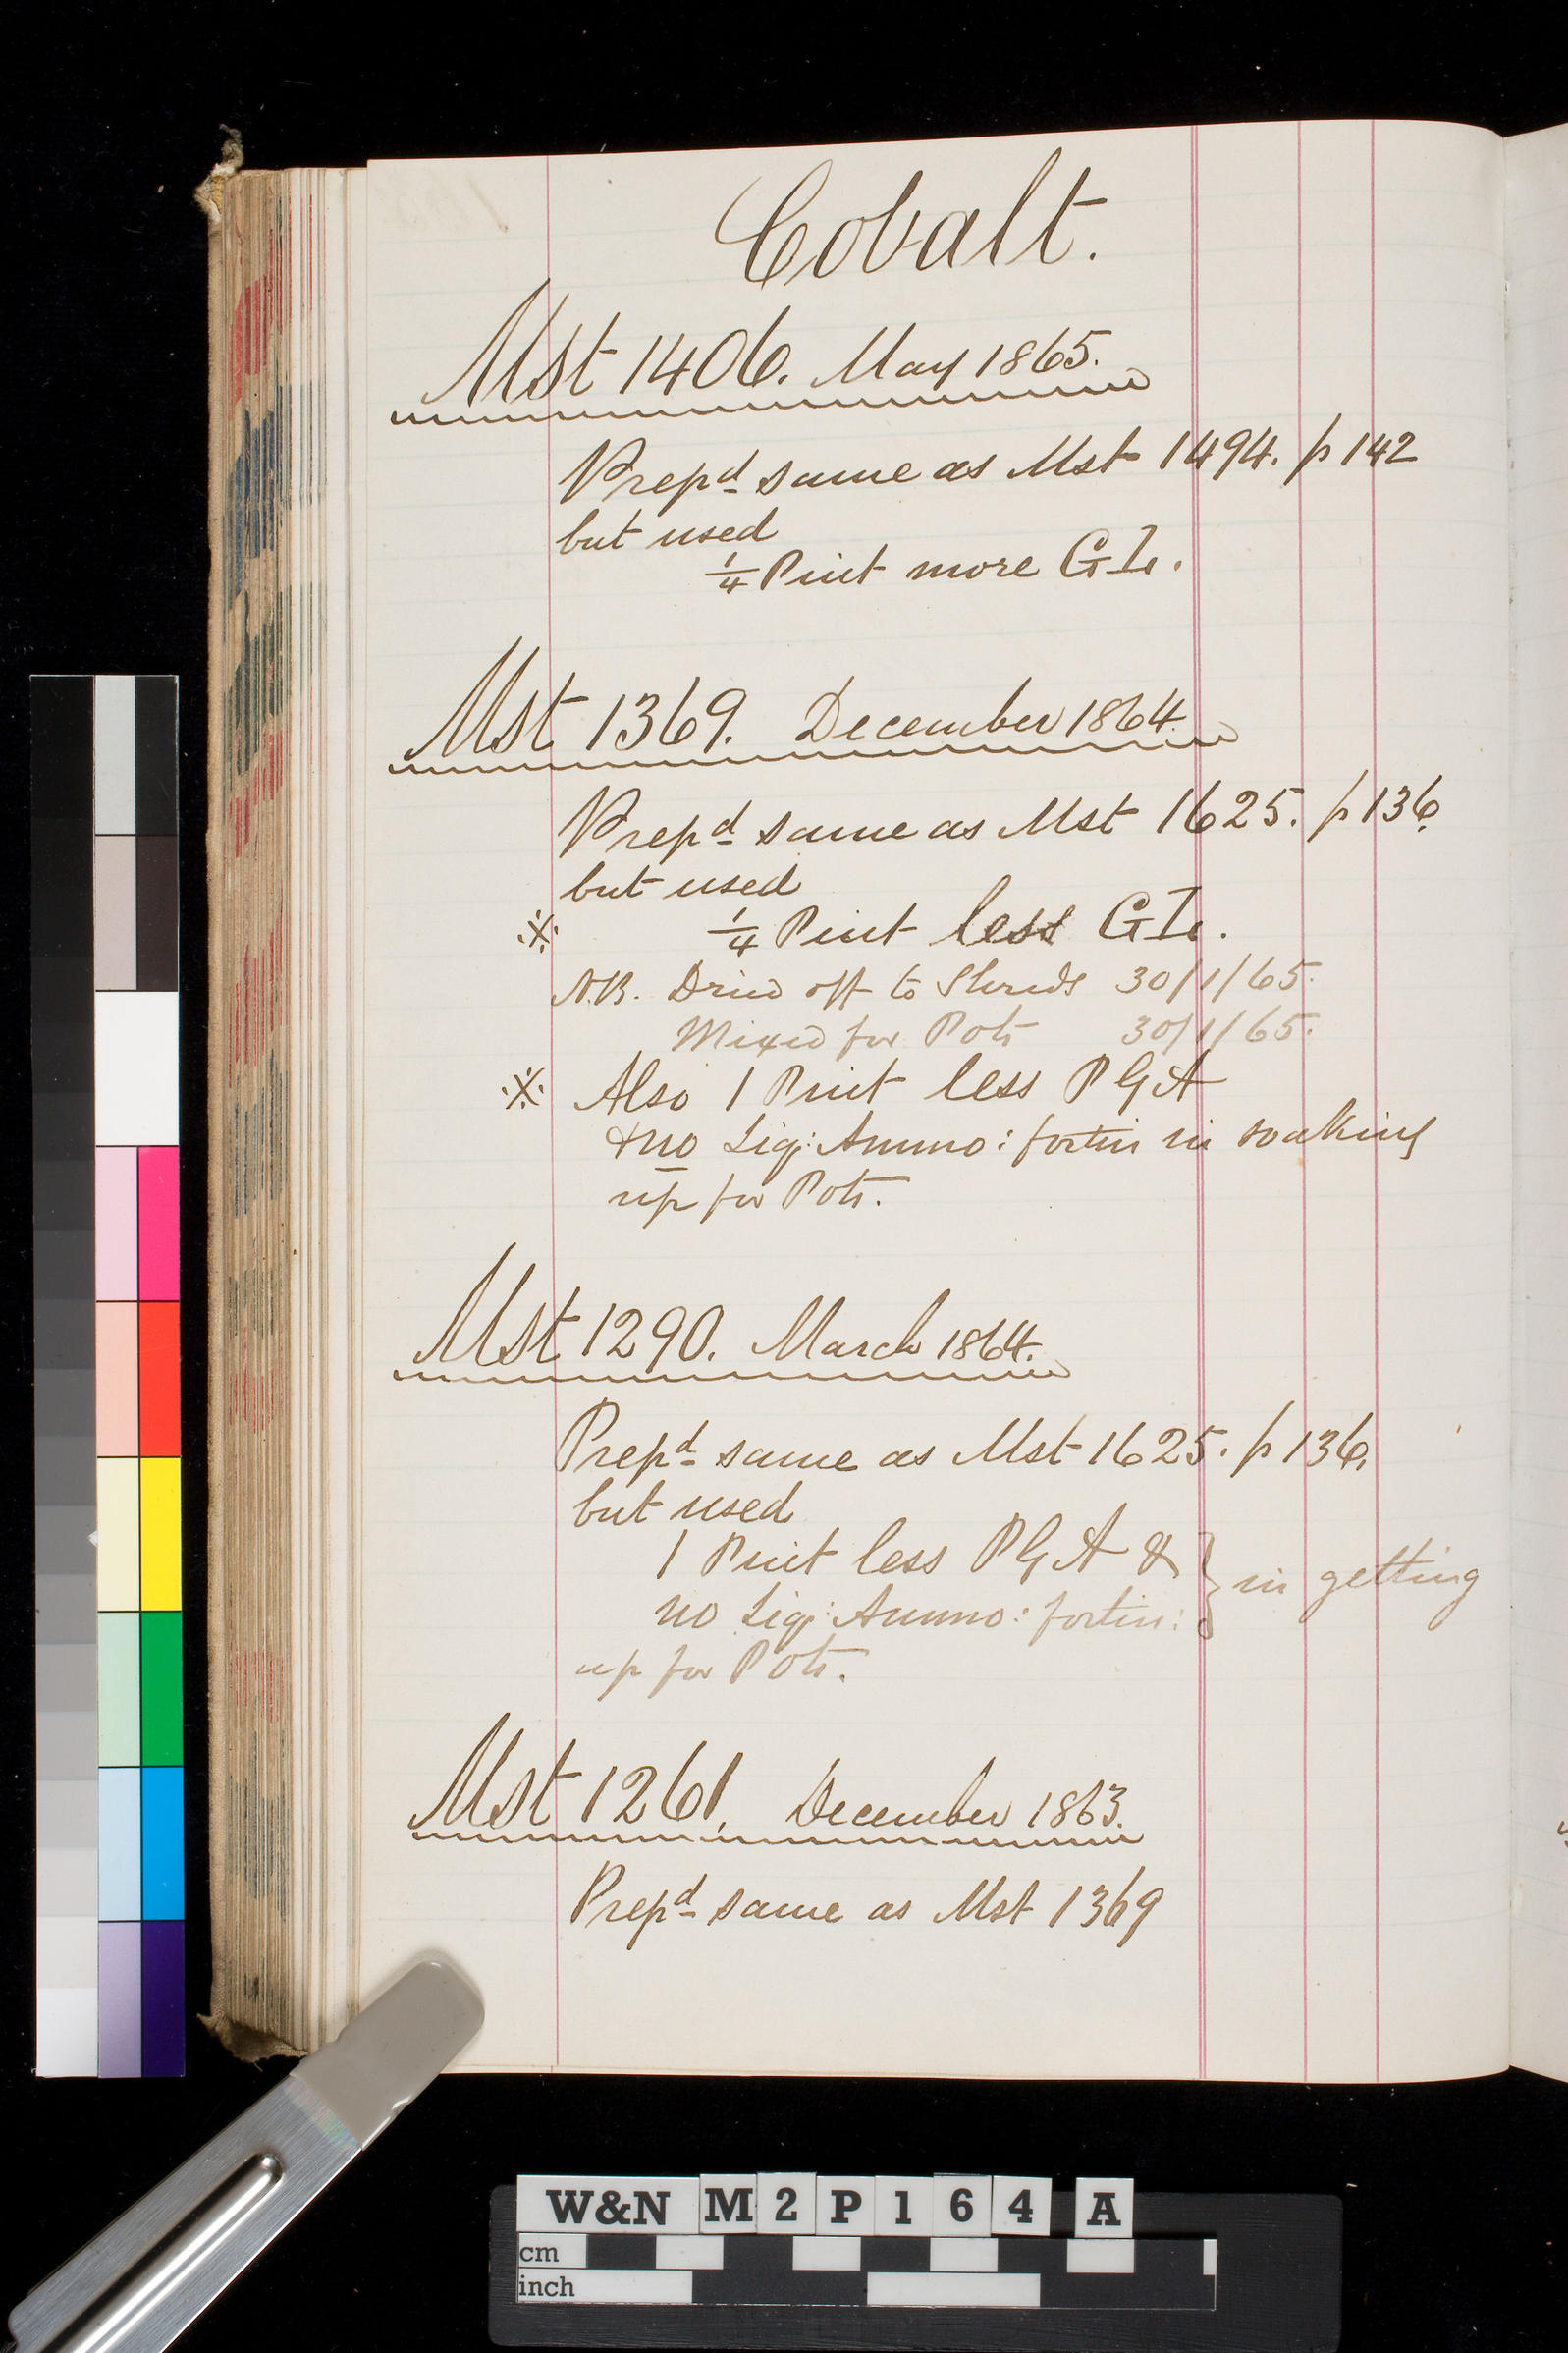 Cobalt.
Mst 1406. May 1865.
Prepd same as Mst 1494. p 142
but used
1/4 Pint more GL.
Mst 1369. December 1864.
Prepd same as Mst 1625. p 136.
but used
※ 1/4 Pint less GL.
N.B. Dried off to Shreds 30/1/65.
Mixed for Pots 30/1/65.
※ Also 1 Pint less PGA
& no Liq: Ammo: fortis: in soaking
up for Pots.
Mst 1290. March 1864.
Prepd same as Mst 1625. p 136.
but used
1 Pint less PGA &
no Liq: Ammo: fortis: } in getting
up for Pots.
Mst 1261. December 1863.
Prepd same as Mst 1369
W&N M2P164 A
cm
inch